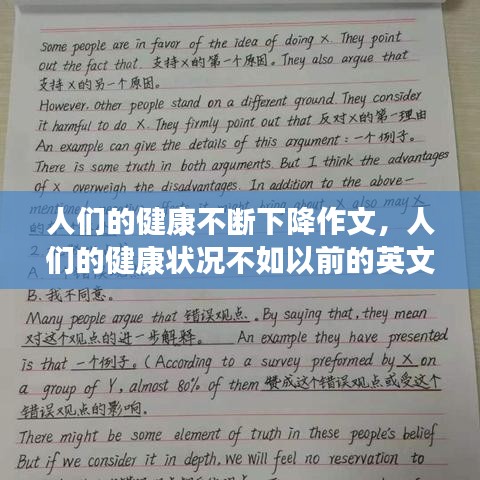 Some people are in favor of the idea of doing X. They point
out the fact that 支持X的第一个原因。They also argue that
支持X的另一个原因。
However, other people stand on a different ground. They consider
it harmful to do X. They firmly point out that 反对X的第一理由
An example can give the details of this argument: 一个例子。
There is some truth in both arguments. But I think the advantages
of X overweigh the disadvantages. In addition to the above-
人们的健康不断下降作文，人
们的健康状况不如以前的英文
B. 我不同意。
Many people argue that 错误观点. By saying that, they mean
对这个观点的进一步解释。An example they have presented
is that 一个例子。(According to a survey preformed by X on
a group of Y, almost 80% of them 赞成这个错误观点或受这个
错误观点的影响。
There might be some element of truth in these people's belief
But if we consider it in depth, we will feel no reservation to